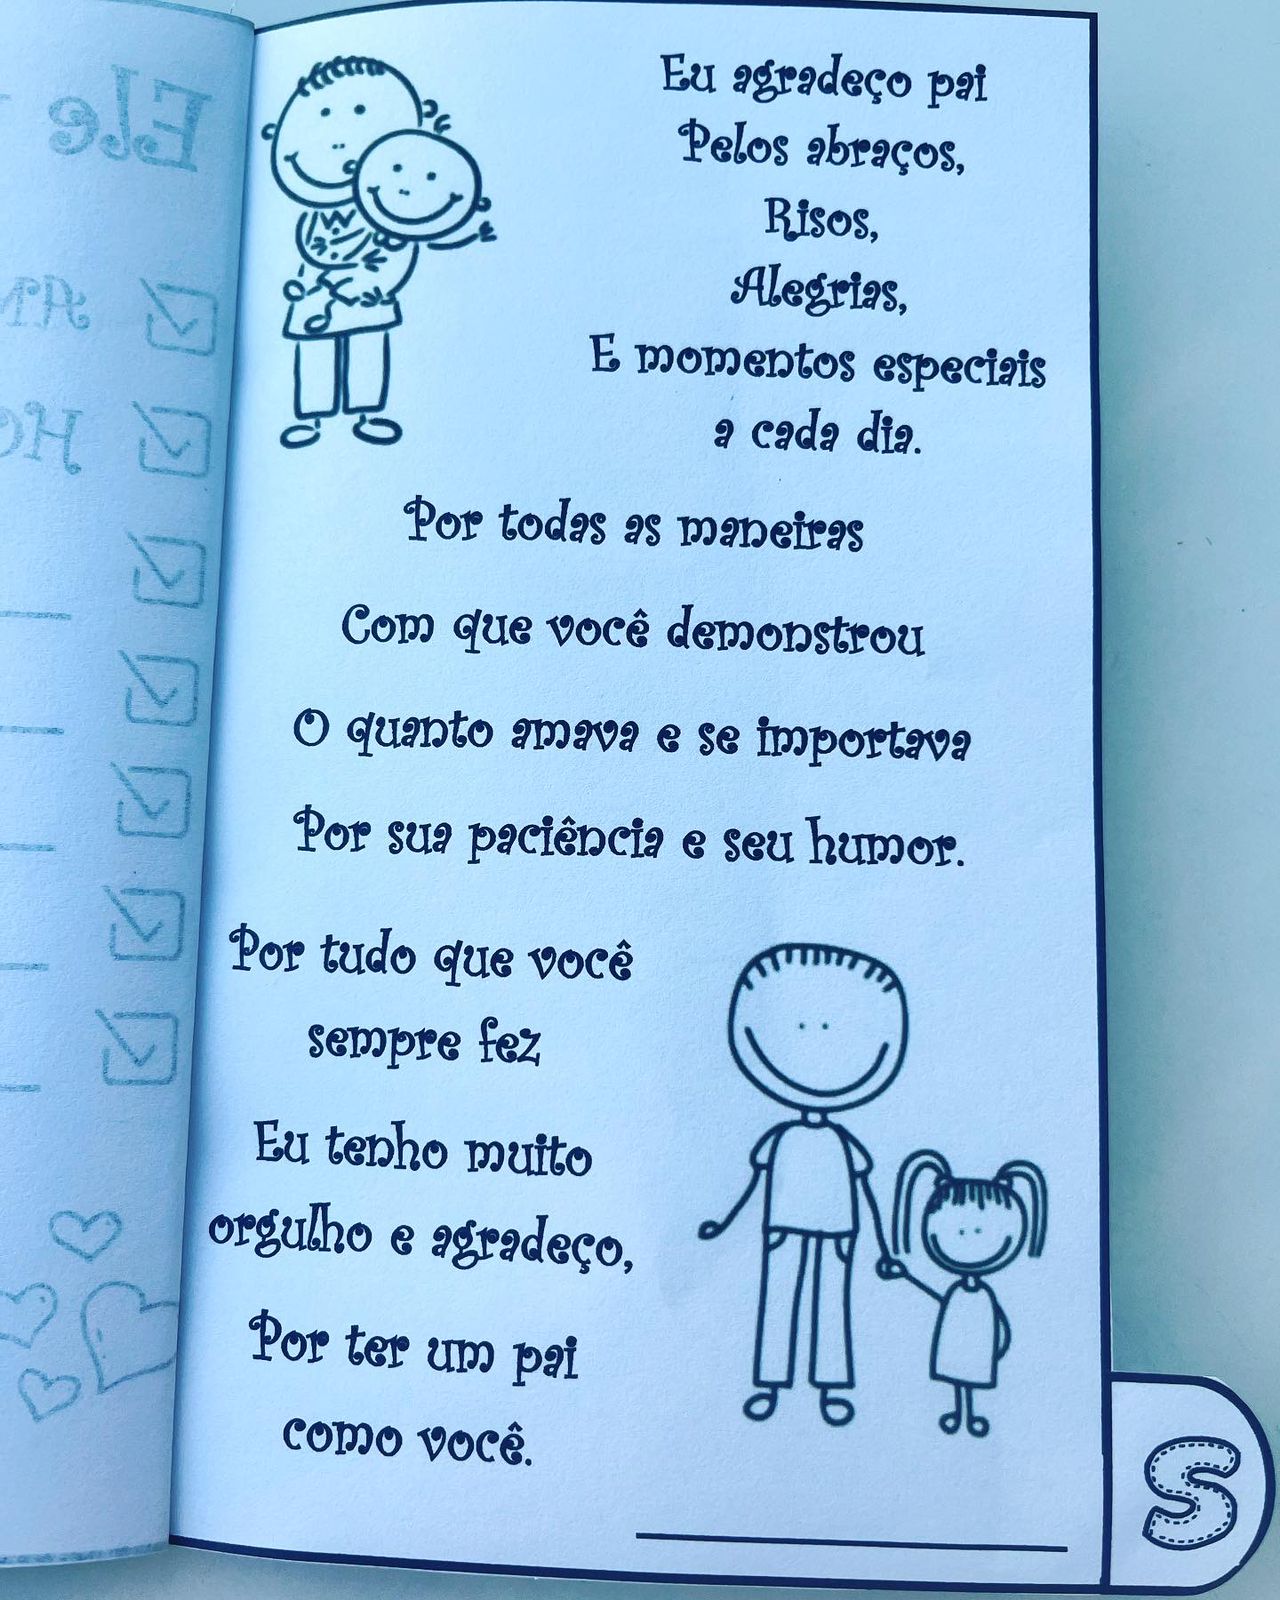 Eu agradeço pai
Pelos abraços,
Risos,
Alegrias,
E momentos especiais
a cada dia.
Por todas as maneiras
Com que você demonstrou
O quanto amava e se importava
Por sua paciência e seu humor.
Por tudo que você
sempre fez
Eu tenho muito
orgulho e agradeço,
Por ter um pai
como você.
S
Ele